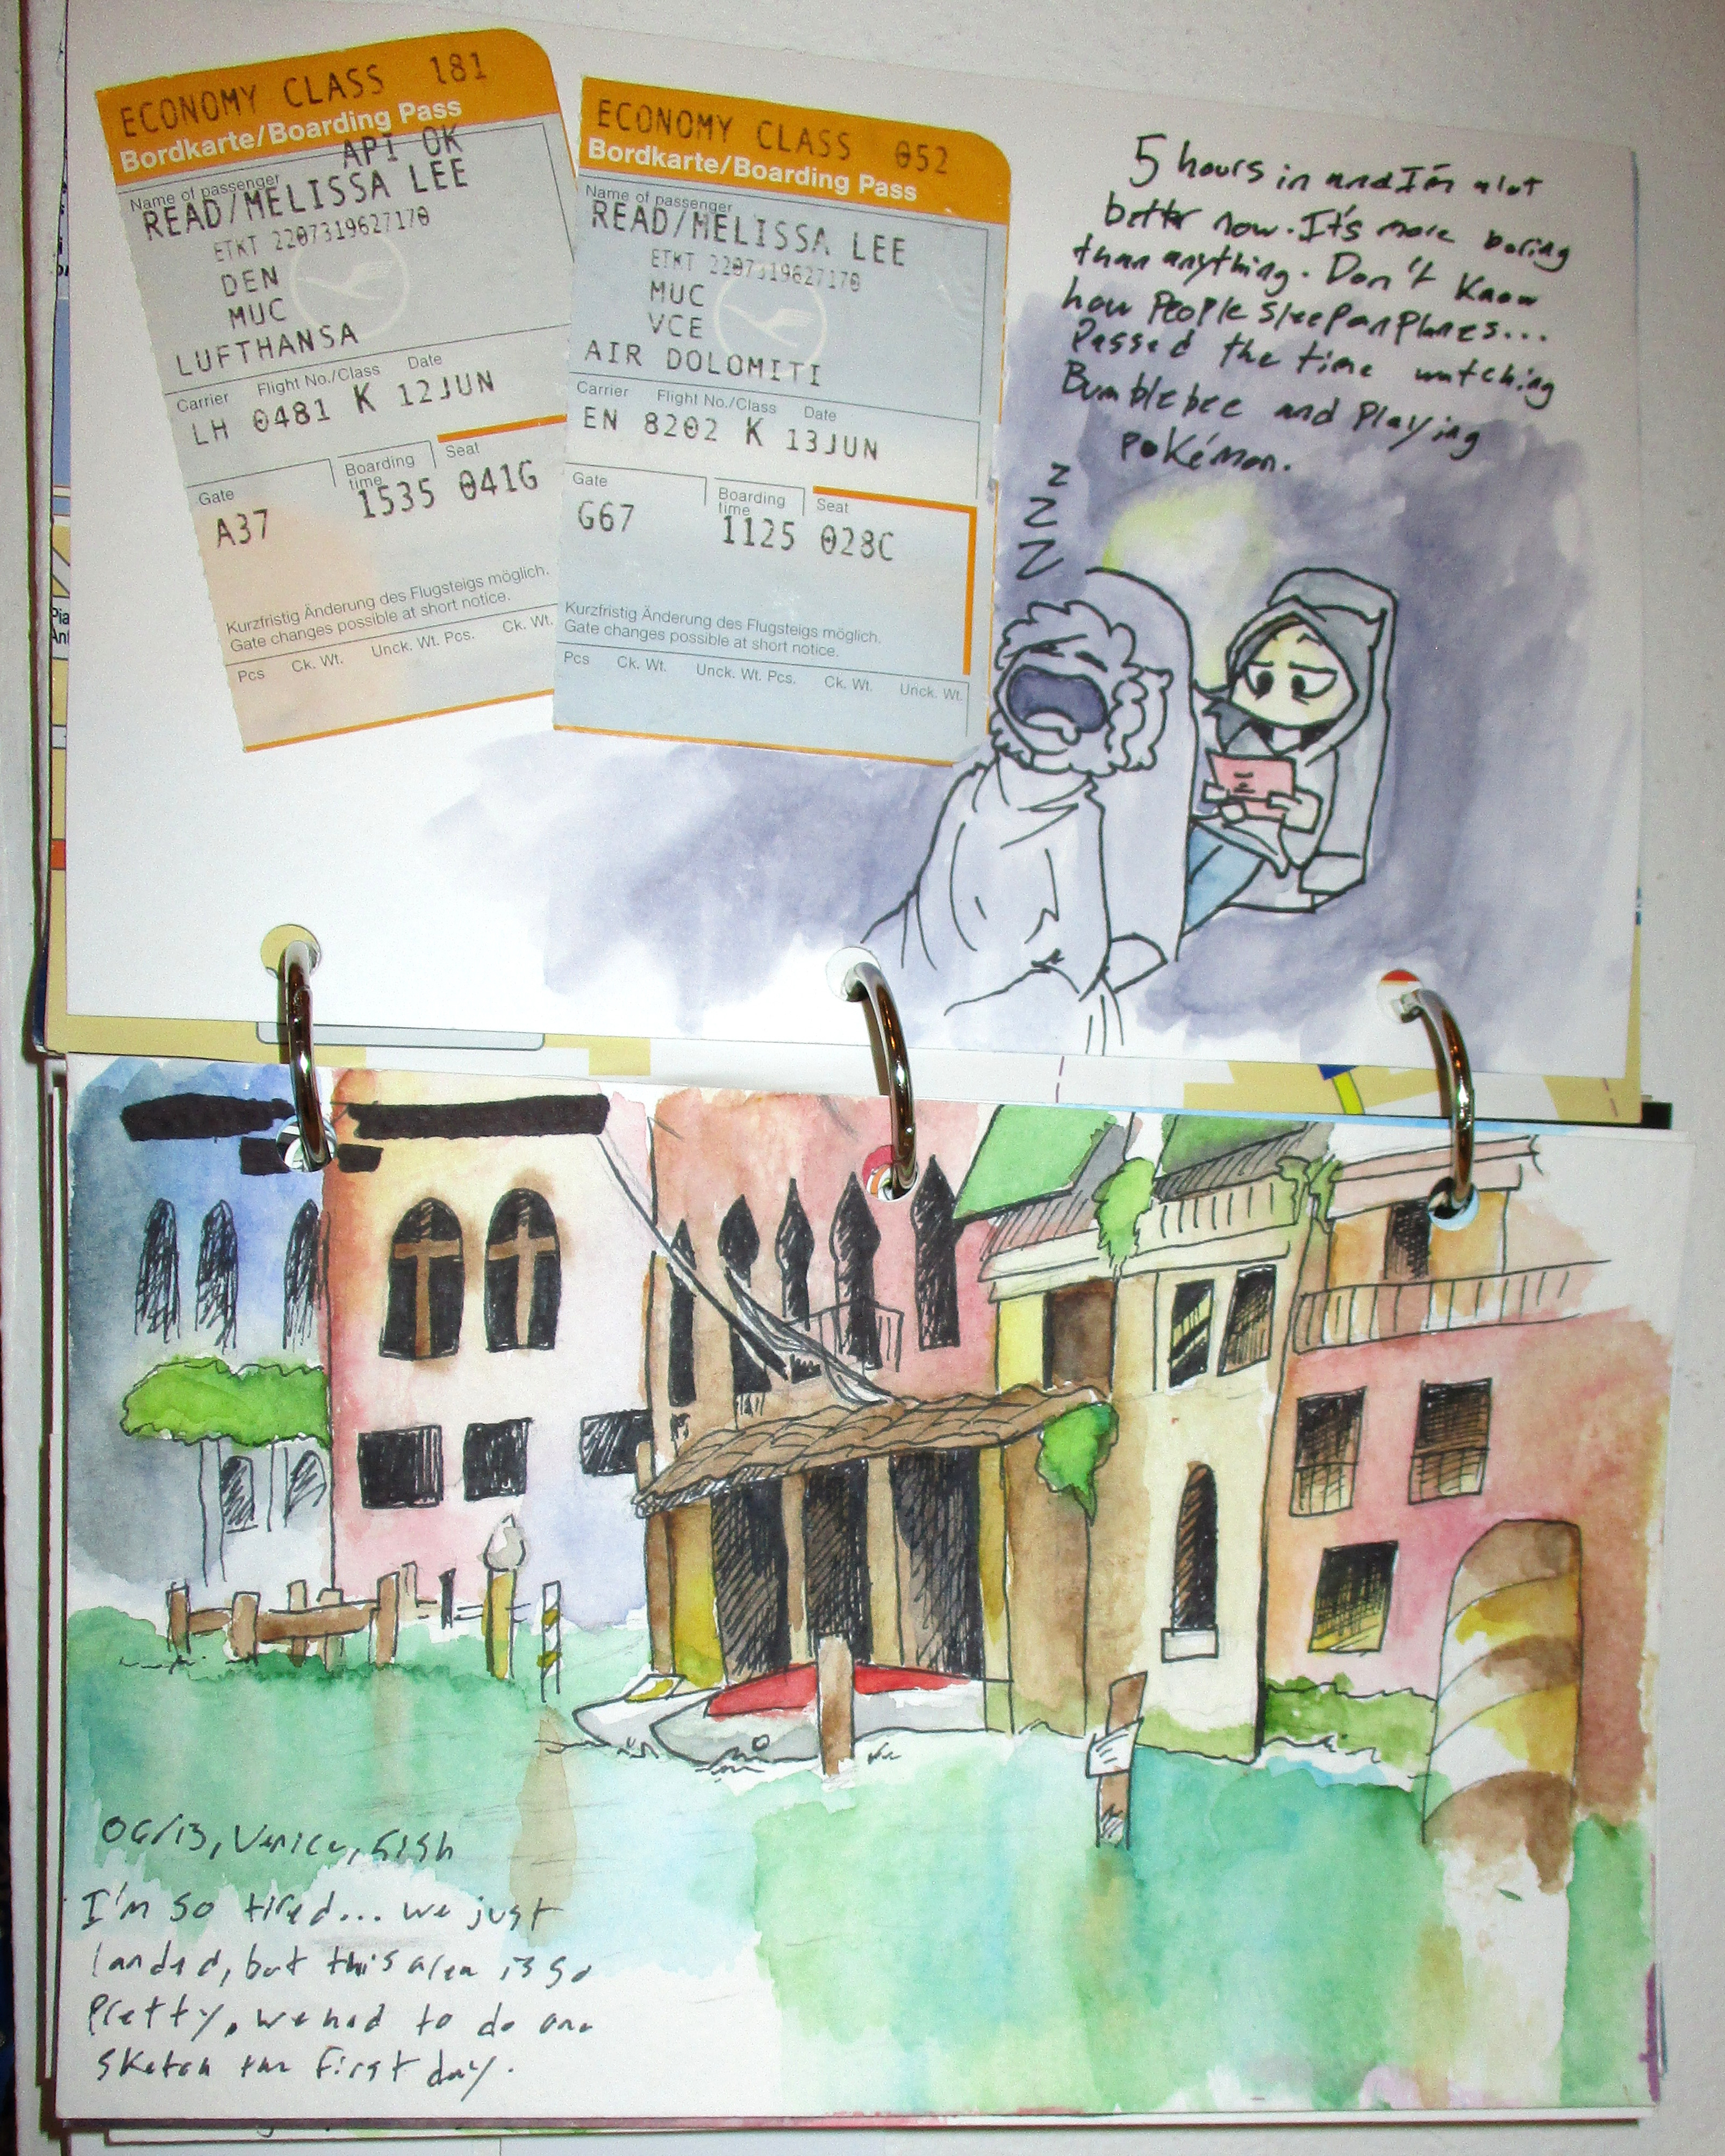 ECONOMY CLASS 181
Bordkarte/Boarding Pass
API OK
Name of passenger
READ/MELISSA LEE
ETKT 2207319627170
DEN
MUC
LUFTHANSA
Carrier Flight No./Class Date
LH 0481 K 12JUN
Gate Boarding time Seat
A37 1535 041G
Kurzfristig Änderung des Flugsteigs möglich.
Gate changes possible at short notice.
Pcs Ck. Wt. Unck. Wt. Pcs. Ck. Wt.
ECONOMY CLASS 052
Bordkarte/Boarding Pass
Name of passenger
READ/MELISSA LEE
ETKT 2207319627170
MUC
VCE
AIR DOLOMITI
Carrier Flight No./Class Date
EN 8202 K 13JUN
Gate Boarding time Seat
G67 1125 028C
Kurzfristig Änderung des Flugsteigs möglich.
Gate changes possible at short notice.
Pcs Ck. Wt. Unck. Wt. Pcs. Ck. Wt. Unck. Wt.
5 hours in and I'm alot
better now. It's more boring
than anything. Don't know
how people sleep on planes...
Passed the time watching
Bumblebee and playing
pokémon.
z
z
z
06/13, Venice,
I'm so tired... we just
landed, but this area is so
pretty, we had to do one
sketch the first day.